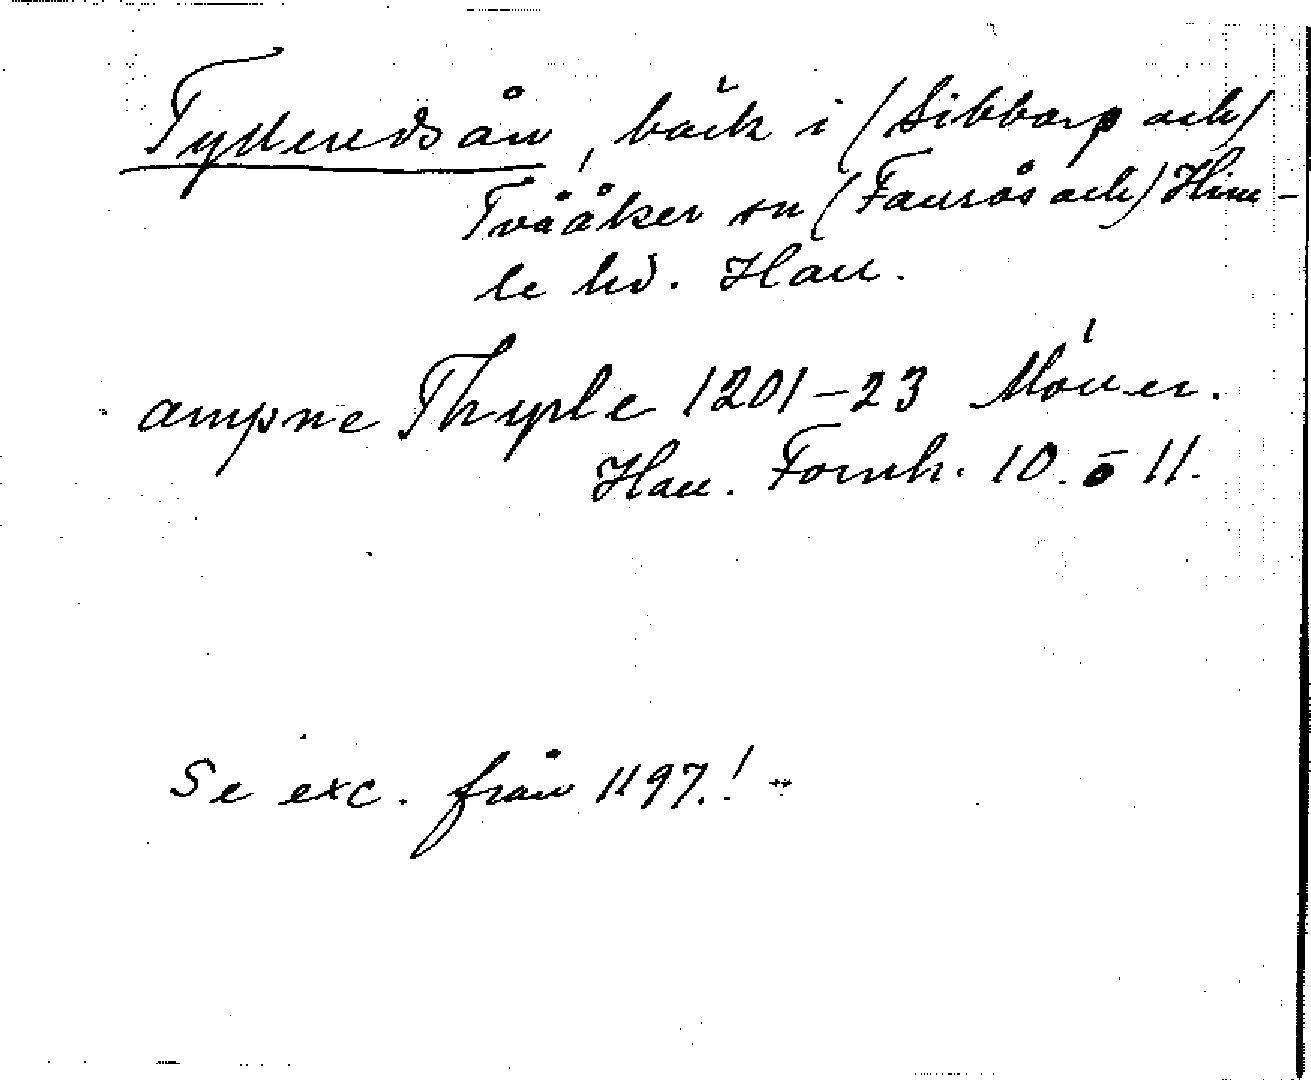 Tyllendsån, bäck i (Sibbarp och)
Tvååker sn (Faurås och) Him-
le hd. Hall.
ampne Thyrle 1201-23 Möller.
Hall. Fornh. 10. o 11.
Se exc. från 1197!